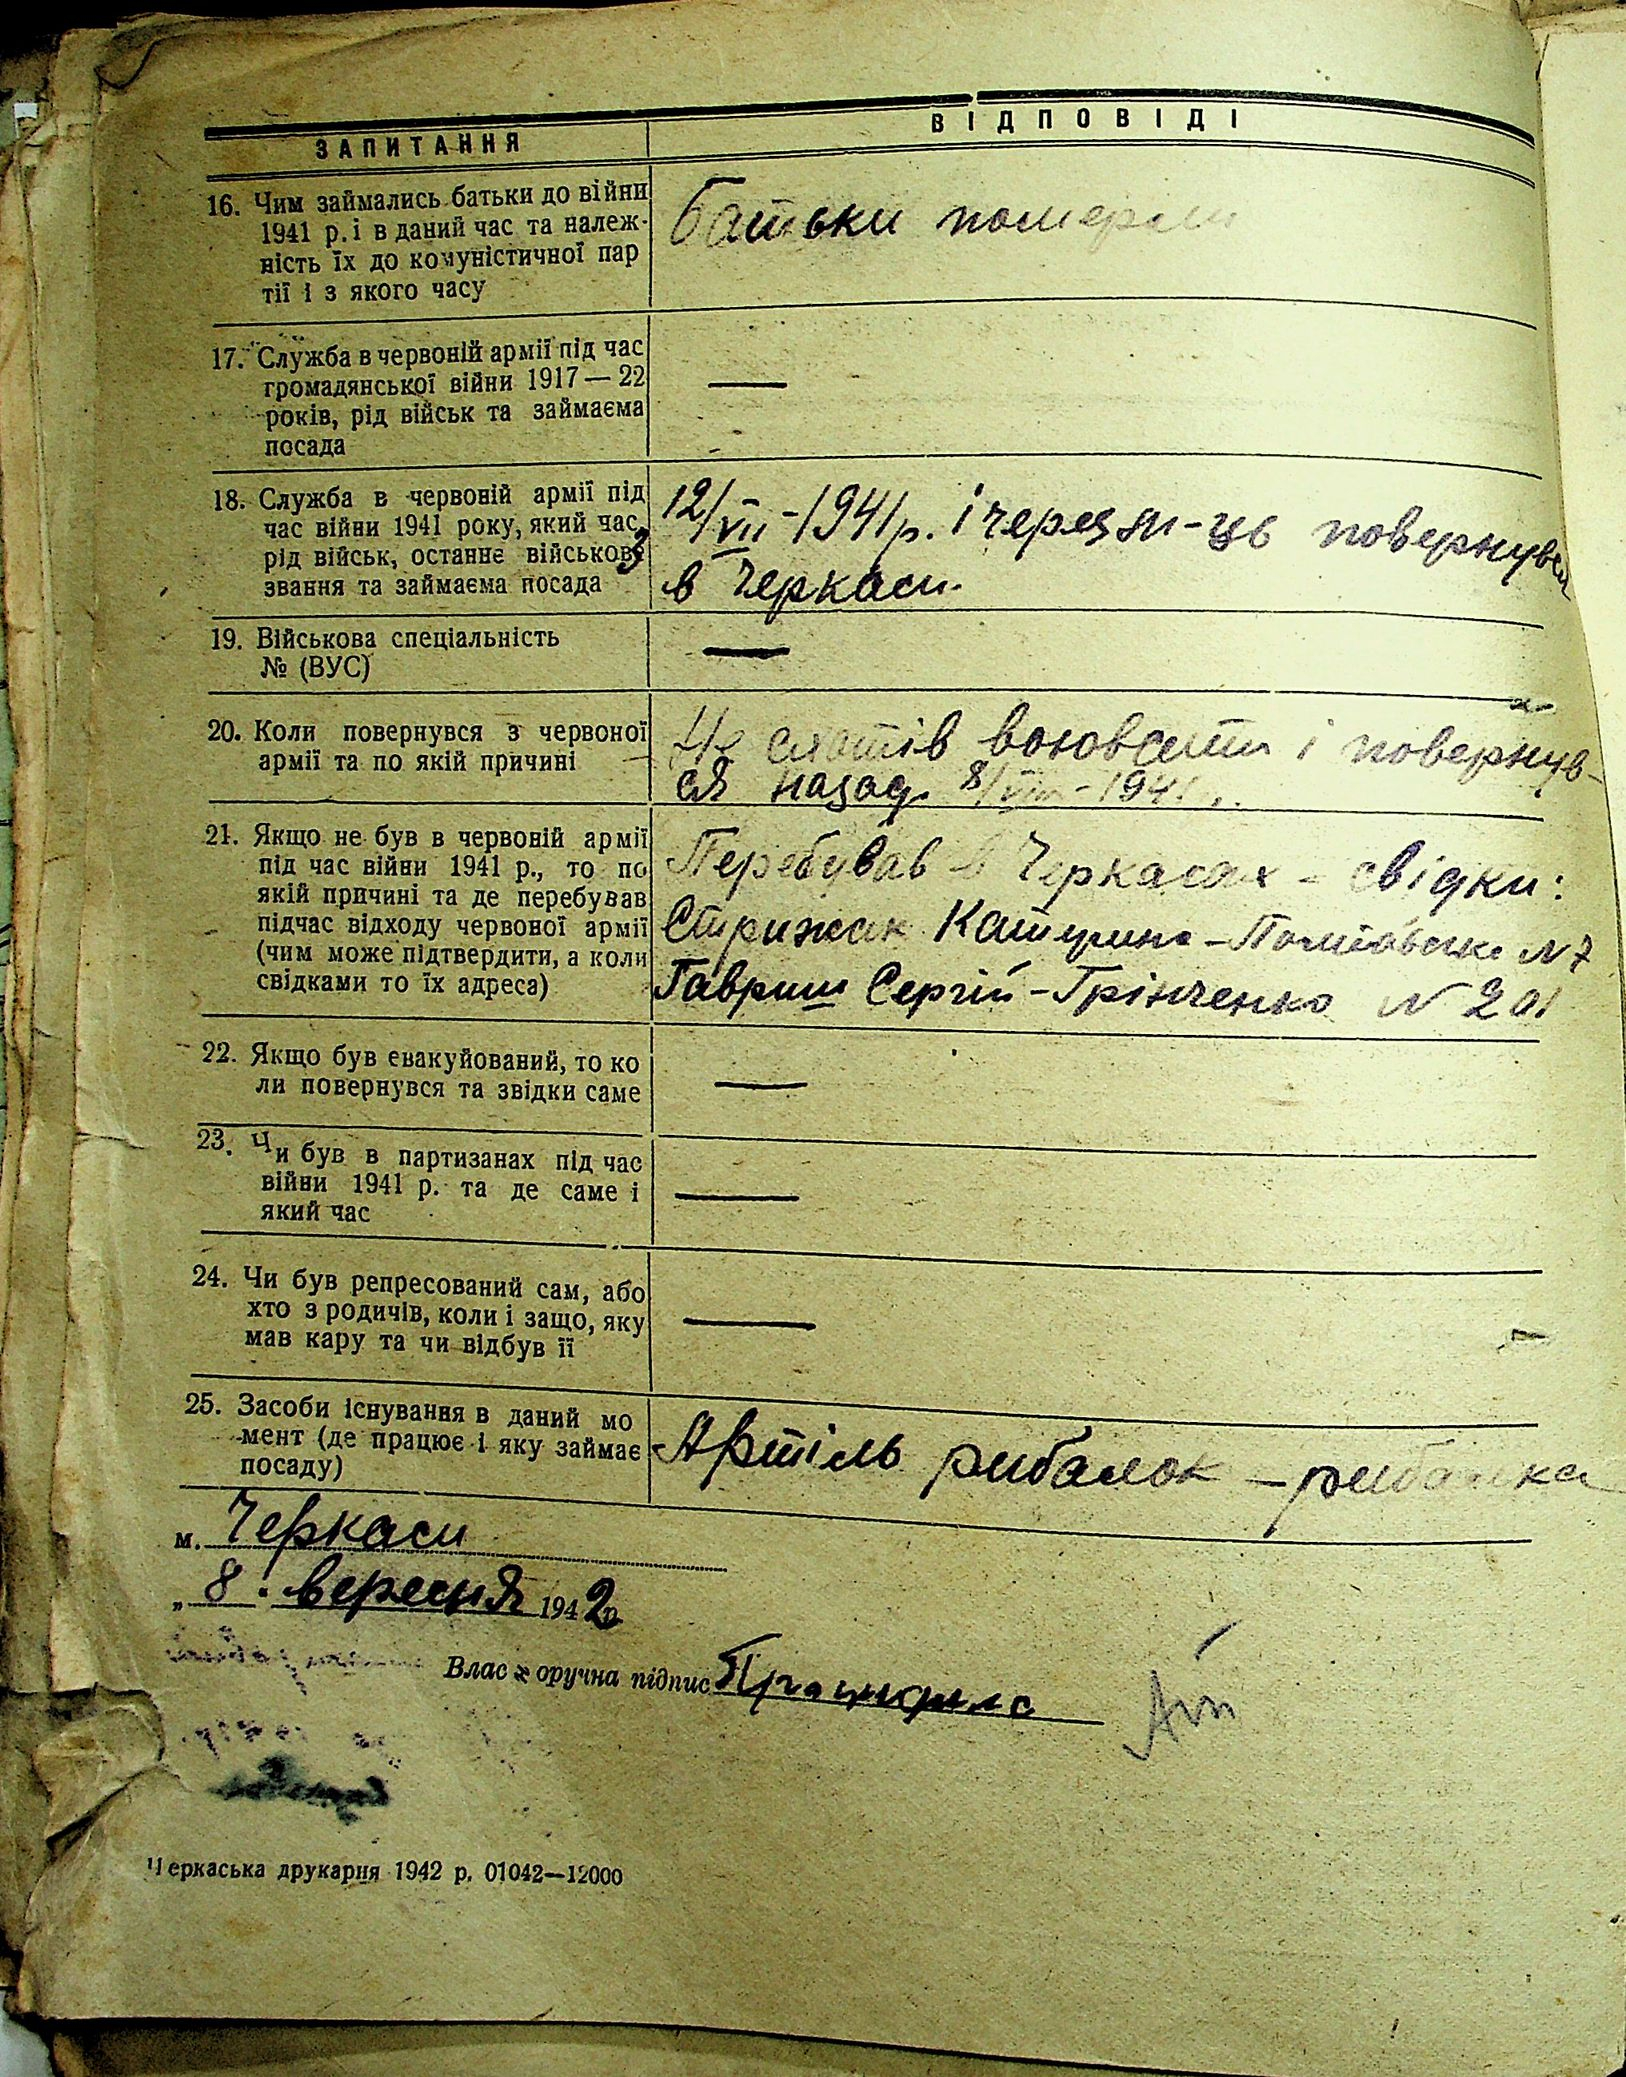 ЗАПИТАННЯ
ВІДПОВІДІ
16. Чим займались батьки до війни
1941 р. і в даний час та належ-
ність їх до комуністичної пар
тії і з якого часу
Батьки померли
17. Служба в червоній армії під час
громадянської війни 1917 — 22
років, рід військ та займаєма
посада
—
18. Служба в червоній армії під
час війни 1941 року, який час,
рід військ, останнє військове
звання та займаєма посада
12/VII - 1941 р. і через м-ць повернувся
в Черкаси.
19. Військова спеціальність
№ (ВУС)
—
20. Коли повернувся з червоної
армії та по якій причині
Не схотів воювати і повернув-
ся назад 8/VIII - 1941
21. Якщо не був в червоній армії
під час війни 1941 р., то по
якій причині та де перебував
підчас відходу червоної армії
(чим може підтвердити, а коли
свідками то їх адреса)
Перебував в Черкасах - свідки:
Стрижак Катерина - N 7
Гавриш Сергій - Грінченко N 201
22. Якщо був евакуйований, то ко
ли повернувся та звідки саме
—
23. Чи був в партизанах під час
війни 1941 р. та де саме і
який час
—
24. Чи був репресований сам, або
хто з родичів, коли і защо, яку
мав кару та чи відбув її
—
25. Засоби існування в даний мо
мент (де працює і яку займає
посаду)
Артіль рибалок - рибалка
м. Черкаси
„ 8 " вересня 1942 р.
Власноручна підпис
Черкаська друкарня 1942 р. 01042—12000